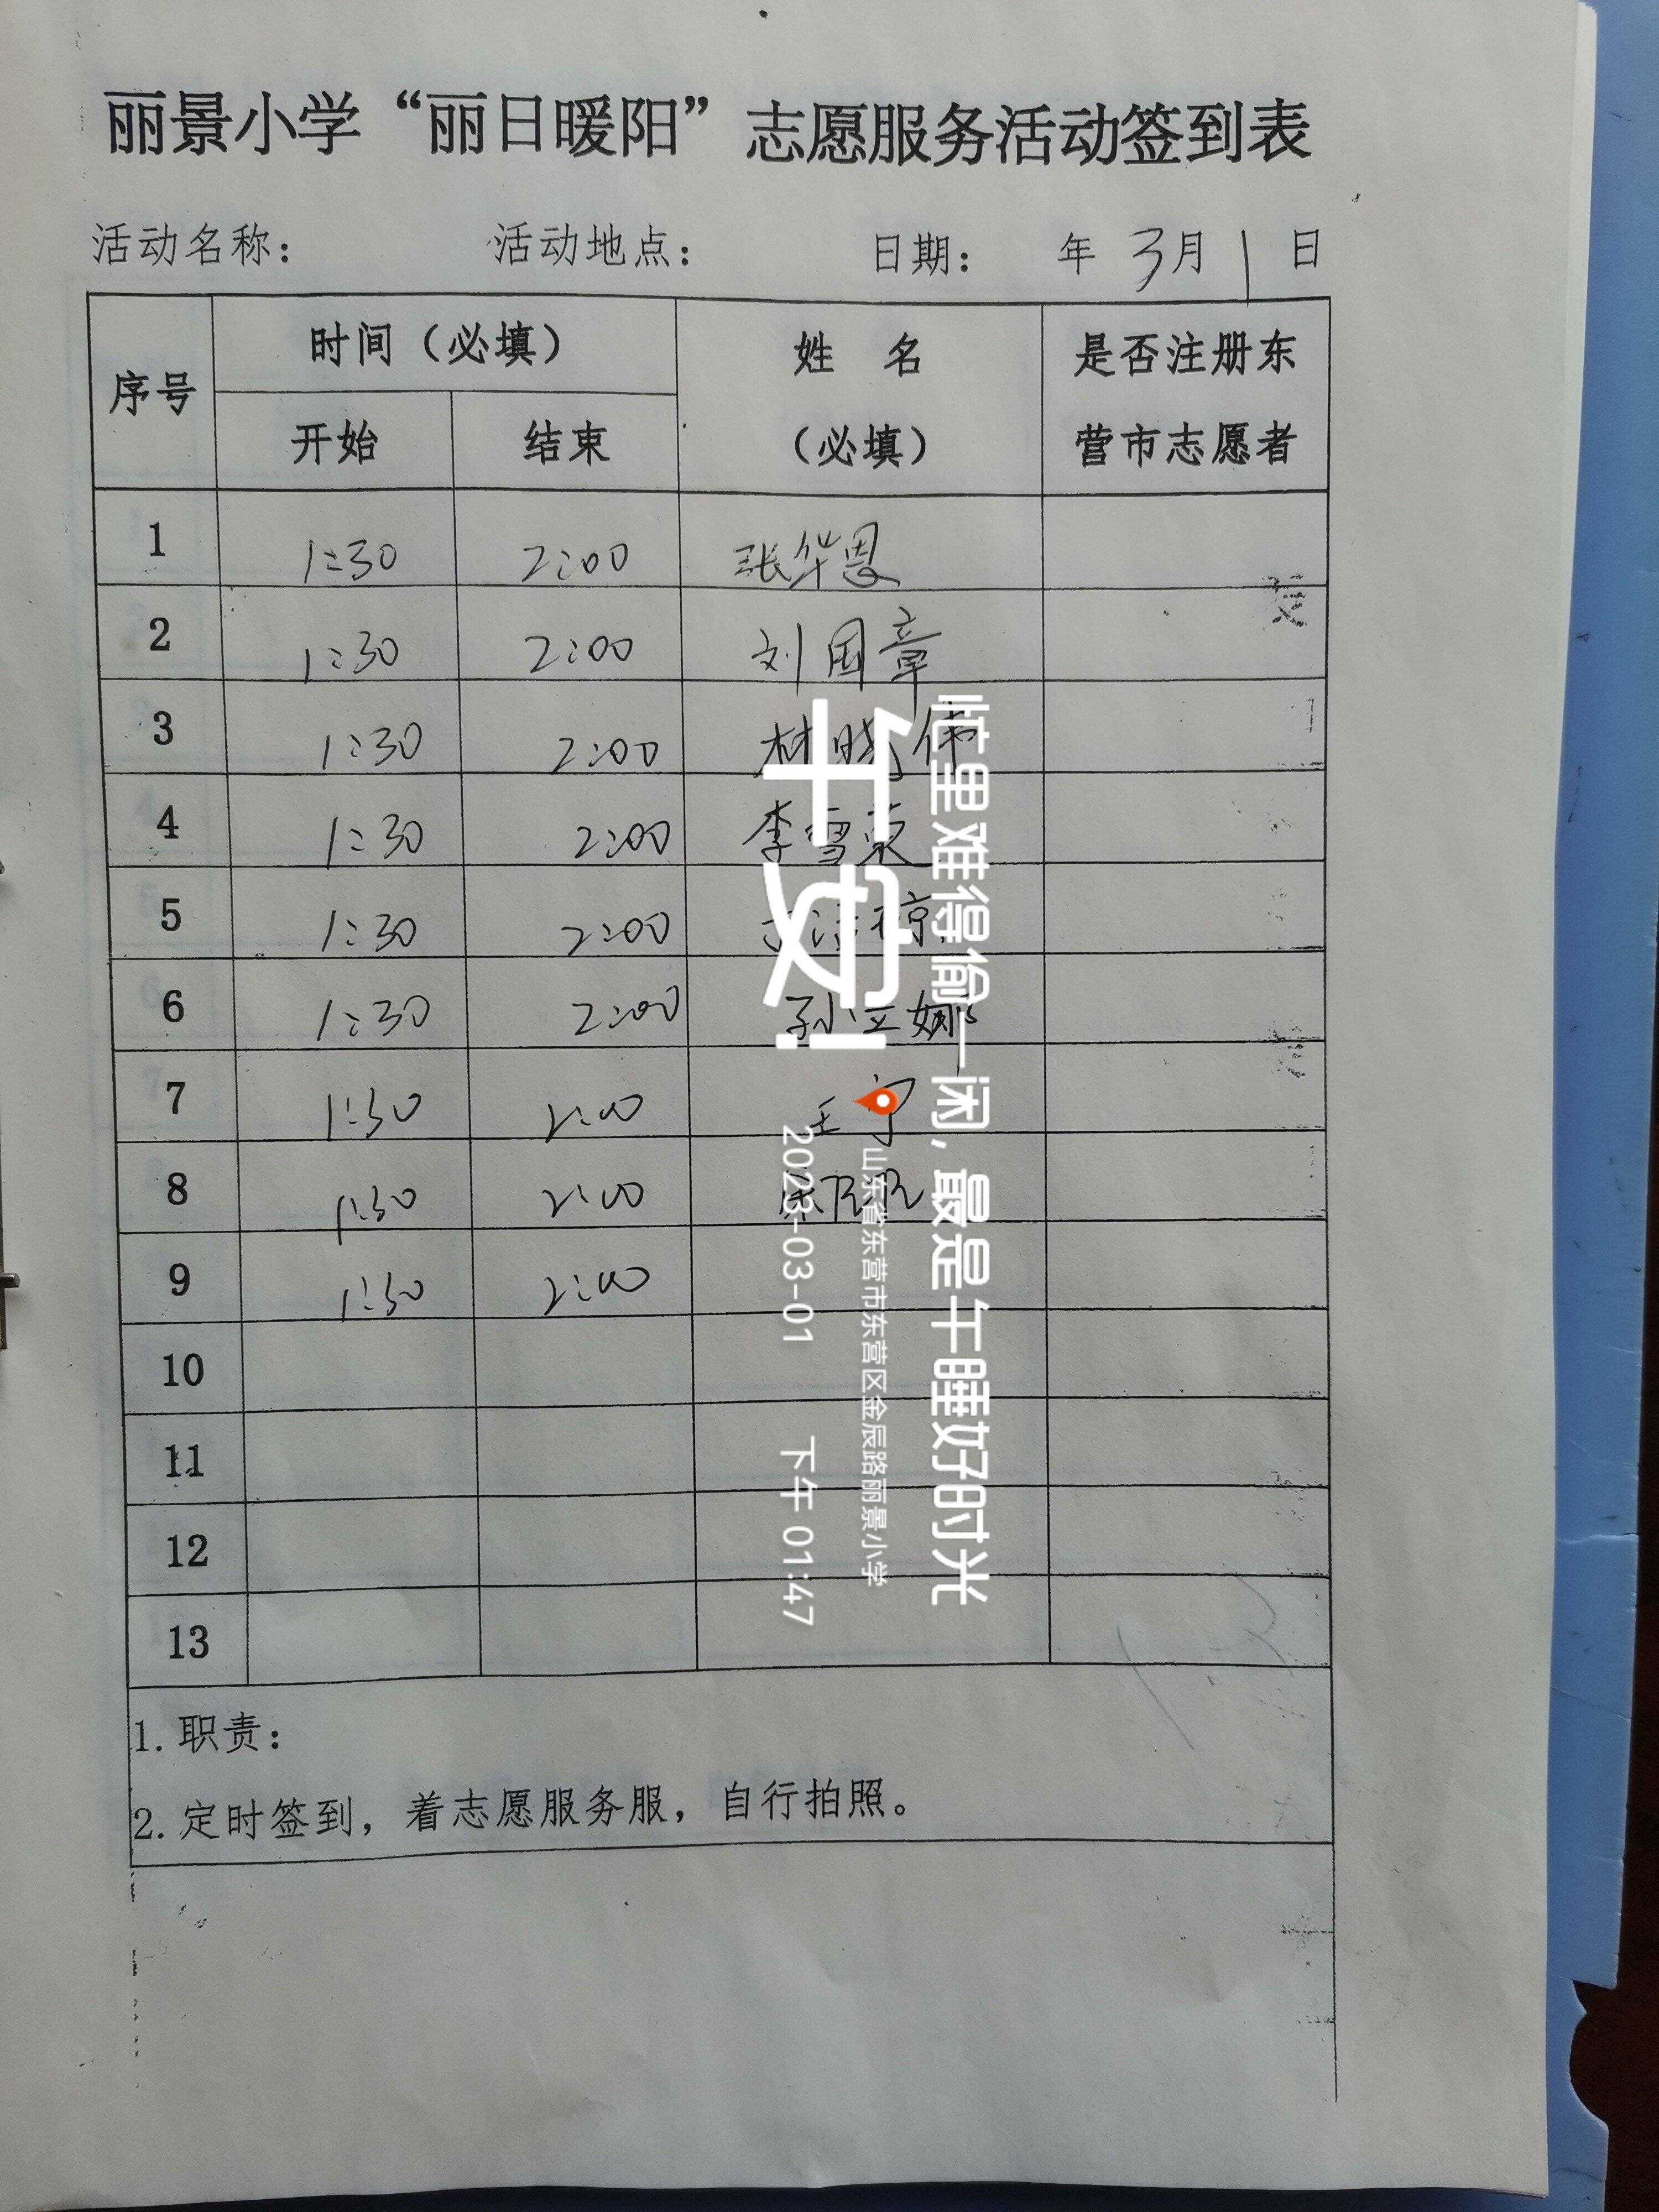 丽景小学“丽日暖阳”志愿服务活动签到表
活动名称： 活动地点： 日期： 年 3月 1 日
序号 时间（必填） 姓 名 （必填） 是否注册东营市志愿者
开始 结束
1 1:30 2:00 张华恩
2 1:30 2:00 刘国章
3 1:30 2:00 林晓伟
4 1:30 2:00 李雪
5 1:30 2:00
6 1:30 2:00 孙立娜
7 1:30 2:00 王宁
8 1:30 2:00
9 1:30 2:00
10
11
12
13
1.职责：
2.定时签到，着志愿服务服，自行拍照。
忙里难得偷一闲,最是午睡好时光
午安!
山东省东营市东营区金辰路丽景小学
2023-03-01 下午 01:47